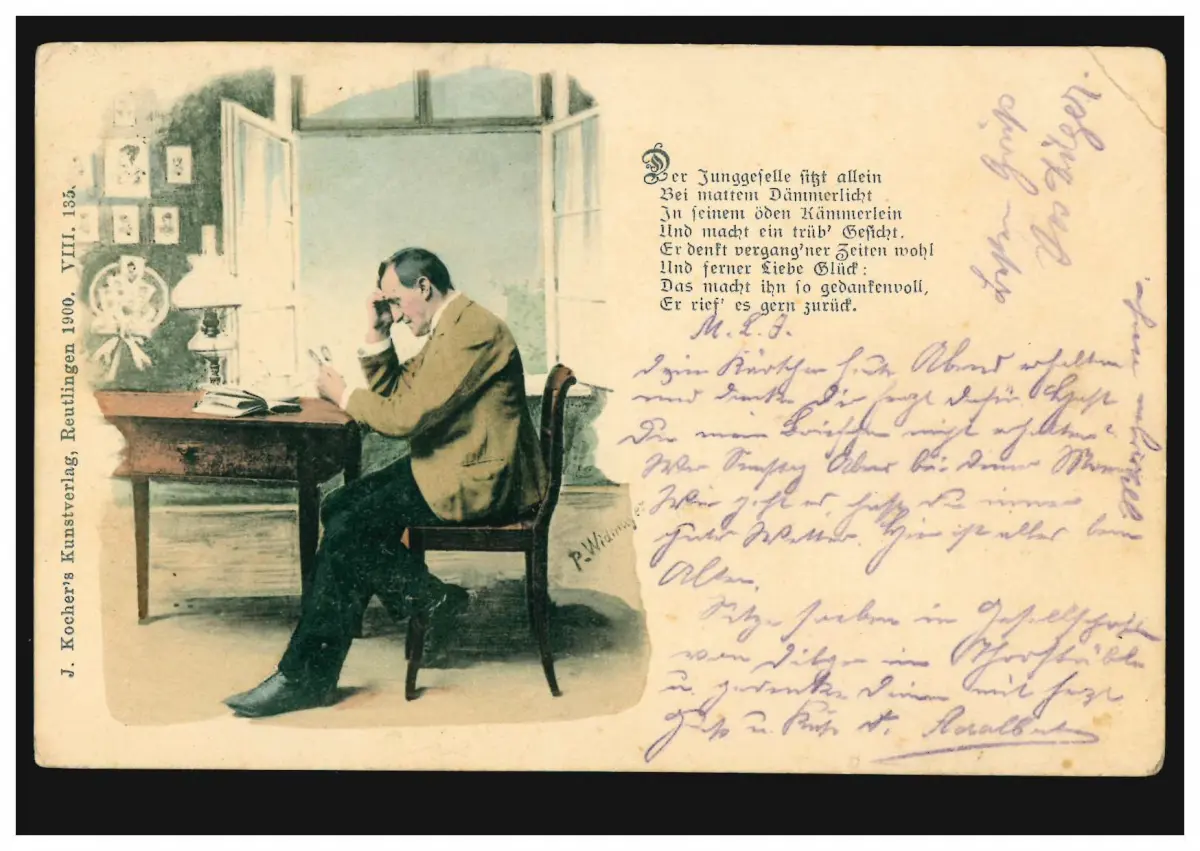 J. Kocher's Kunstverlag, Reutlingen 1900. VIII. 135.
Der Junggeselle sitzt allein
Bei mattem Dämmerlicht
In seinem öden Kämmerlein
Und macht ein trüb' Gesicht.
Er denkt vergang'ner Zeiten wohl
Und ferner Liebe Glück:
Das macht ihn so gedankenvoll,
Er rief' es gern zurück.
P. Widmayer
M. L. J.
Dein Kärtchen heute Abend erhalten
und danke Dir herzl dafür. Hast
Du mein Briefchen nicht erhalten?
Wie geht es, hast Du immer
gutes Wetter. Hier ist alles beim
Alten.
Sitze soeben in Gesellschaft
von Dilger im
u. gedenke Deiner mit herzl
Gruß u. Kuß D. Adalbert